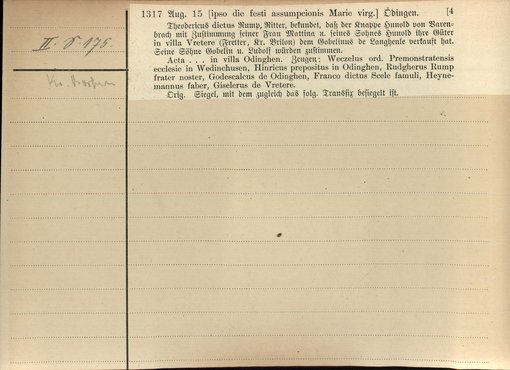 1317 Aug. 15 [ipso die festi assumpcionis Marie virg.] Ödingen. [4
Theodericus dictus Rump, Ritter, bekundet, daß der Knappe Hunold von Baren-
brach mit Zustimmung seiner Frau Mattina u. seines Sohnes Hunold ihre Güter
in villa Vretere (Fretter, Kr. Brilon) dem Gobelinus de Langhenle verkauft hat.
Seine Söhne Gobelin u. Ludolf würden zustimmen.
Acta . . . in villa Odinghen. Zeugen: Weczelus ord. Premonstratensis
ecclesie in Wedinchusen, Hinricus prepositus in Odinghen, Rudgherus Rump
frater noster, Godescalcus de Odinghen, Franco dictus Scele famuli, Heyne-
mannus faber, Giselerus de Vretere.
Orig. Siegel, mit dem zugleich das folg. Transfix besiegelt ist.
II. S. 175